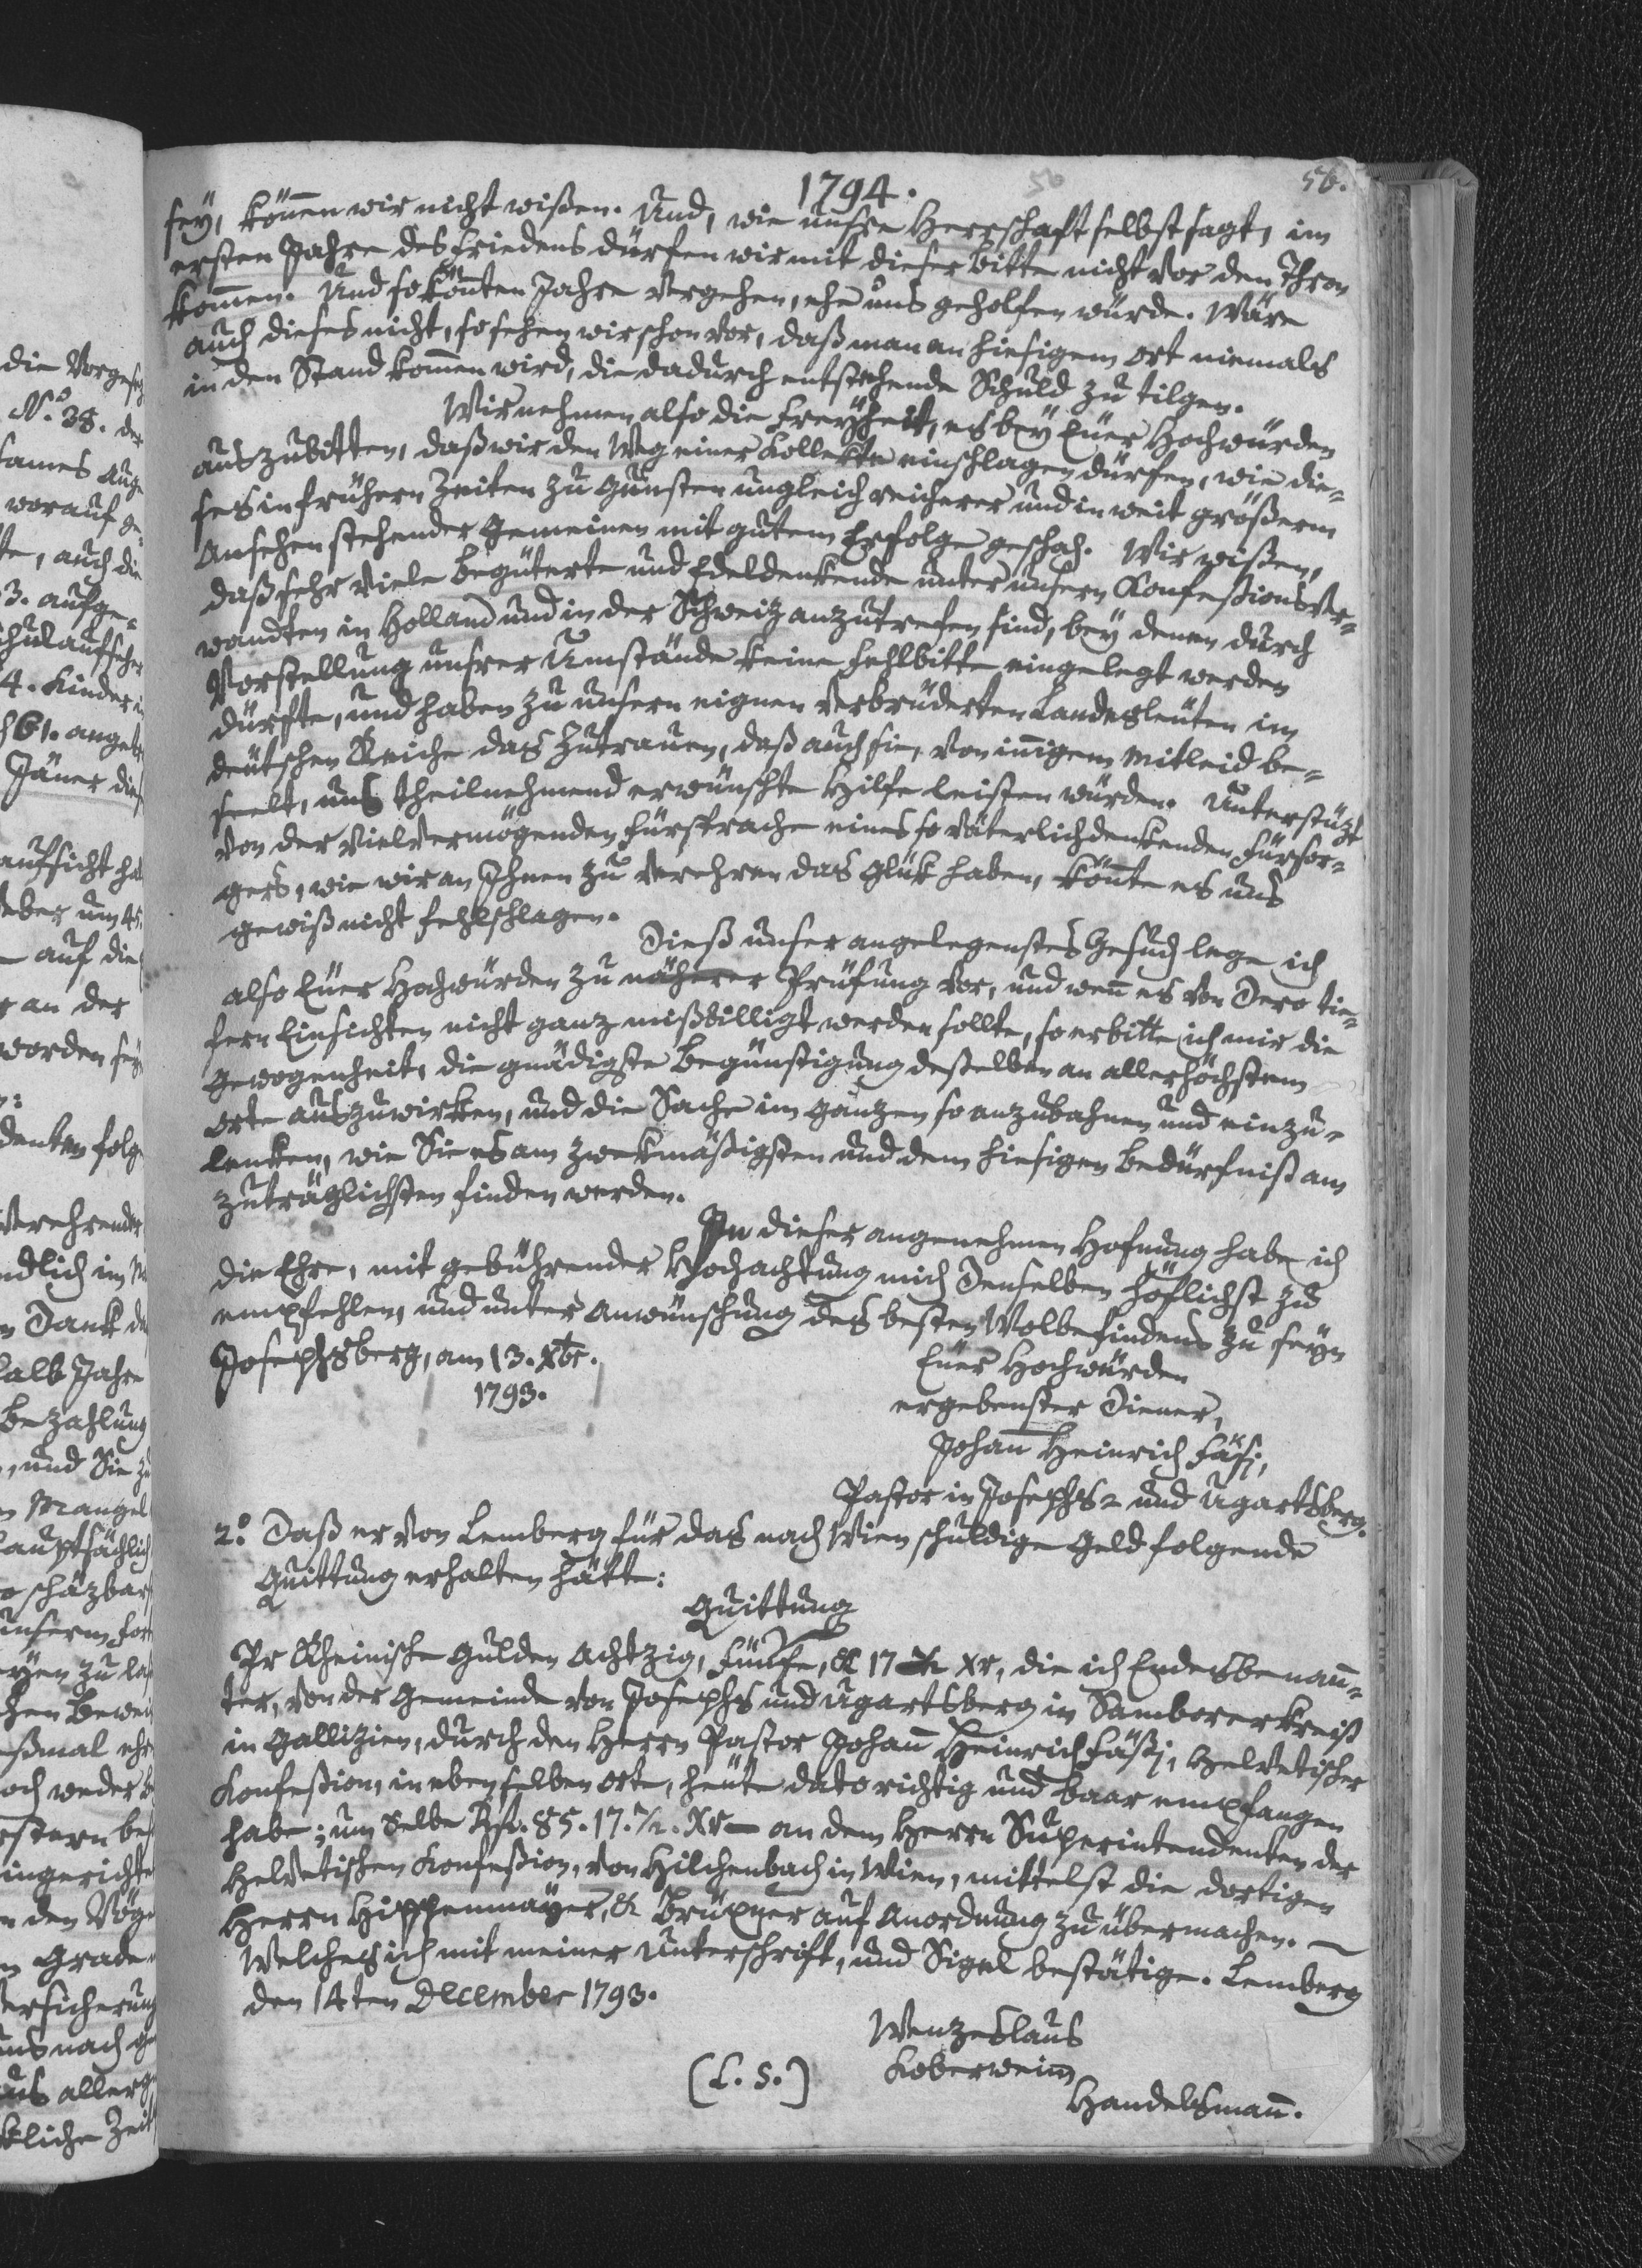 1794.
56.
sey, können wir nicht wißen. Und, wie unsre Herrschaft selbst sagt, im
ersten Jahre des Friedens dürfen wir mit dieser Bitte nicht vor den Thron
kom̄en. Und so kön̄ten Jahre vergehen, ehe uns geholfen würde. Wäre
auch dieses nicht, so sehen wir schon vor, daß man an hiesigem Ort niemals
in den Stand kom̄en wird, die dadurch entstehende Schuld zu tilgen.
Wir nehmen also die Freyheit, es bey Euer Hochwürden
auszubitten, daß wir den Weg einer Kollekte einschlagen dürfen, wie die-
ses in frühern Zeiten zu Gunsten ungleich reicherer und in weit größerm
Ansehen stehender Gemeinen mit gutem Erfolge geschah. Wir wißen,
daß sehr viele Begüterte und Edeldenkende unter unsern Konfeßionsver-
wandten in Holland und in der Schweiz anzutrefen sind, bey denen durch
Vorstellung unsrer Umstände keine Fehlbitte eingelegt werden
dürfte, und haben zu unsern eignen verbrüderten Landesleuten im
deutschen Reiche das Zutrauen, daß auch sie, von in̄igem Mitleid be-
seelt, uns theilnehmend erwünschte Hilfe leisten würden. Unterstüzt
von der vielvermögenden Fürsprache eines so väterlichdenkenden Fürsor-
gers, wie wir an Ihnen zu verehren das Glük haben, kön̄te es uns
gewiß nicht fehlschlagen.
Dieß unser angelegenstes Gesuch lege ich
also Euer Hochwürden zu näherer Prüfung vor, und wen̄ es von Dero tie-
fern Einsichten nicht ganz mißbilligt werden sollte, so erbitte ich mir die
Gewogenheit, die gnädigste Begünstigung deßelben an allerhöchstem
Orte auszuwirken, und die Sache im Ganzen so anzubahnen und einzu-
lenken, wie Sie es am zwekmäßigsten und dem hiesigen Bedürfniß am
zuträglichsten finden werden.
In dieser angenehmen Hofnung habe ich
die Ehre, mit gebührender Hochachtung mich Denselben höflichst zu
empfehlen, und unter Anwünschung des besten Wolbefindens zu seyn
Josephsberg, am 13. Xbr.
1793.
Euer Hochwürden
ergebenster Diener,
Johan̄ Heinrich Fäsj,
Pastor in Josephs- und Ugartsberg.
2.° Daß er von Lemberg für das nach Wien schuldige Geld folgende
Quittung erhalten hätte:
Quittung
Pr Rheinische Gulden Achtzig, Fünfe, & 17 xr, die ich Endesbenan̄-
ter, von der Gemeinde von Josephs und Ugartsberg in Samborerkreiß
in Gallizien, durch den Herrn Pastor Johan̄ Heinrich Fäßj, Helvetischer
Konfeßion, in eben selben Orte, heute dato richtig und baar empfangen
habe; um selbe Rfl. 85. 17. ½. Xr — an dem Herrn Superintendenten der
Helvetischen Konfeßion, von Hilchenbach in Wien, mittelst die dortigen
Herrn Hippenmäyer, & Brüxner auf Anordnung zu übermachen. —
Welches ich mit meiner Unterschrift, und Sigel bestätige. Lemberg
den 14ten December 1793.
Wenzeslaus
(L. S.) Koberwein
Handelsman̄.